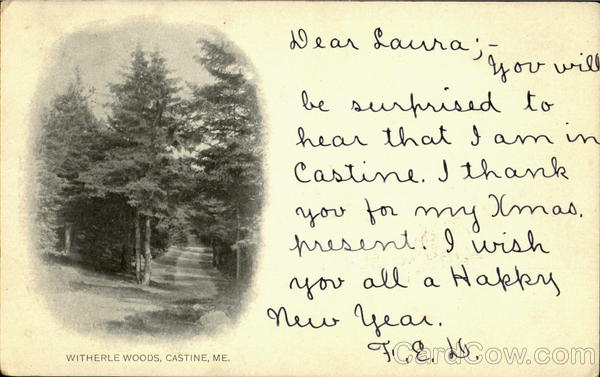 Dear Laura;-
You will
be surprised to
hear that I am in
Castine. I thank
you for my Xmas.
present. I wish
you all a Happy
New Year.
F. E. D.
WITHERLE WOODS, CASTINE, ME.
CardCow.com